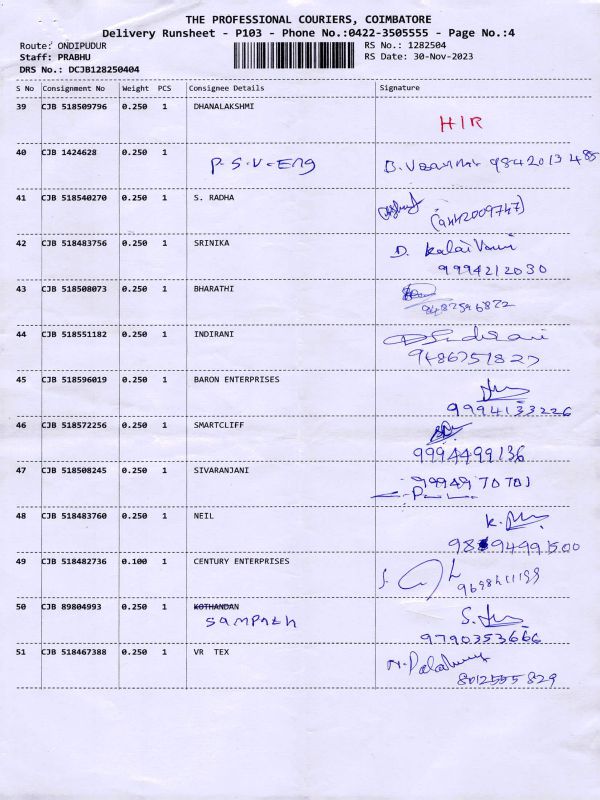 THE PROFESSIONAL COURIERS, COIMBATORE
Delivery Runsheet - P103 - Phone No.:0422-3505555 - Page No.:4
Route: ONDIPUDUR RS No.: 1282504
Staff: PRABHU RS Date: 30-Nov-2023
DRS No.: DCJB128250404
S No Consignment No Weight PCS Consignee Details Signature
39 CJB 518509796 0.250 1 DHANALAKSHMI
HIR
40 CJB 1424628 0.250 1
P-S-V-ENg
41 CJB 518540270 0.250 1 S. RADHA
(9442009747)
42 CJB 518483756 0.250 1 SRINIKA D. Kalai Vani
9994212030
43 CJB 518508073 0.250 1 BHARATHI
44 CJB 518551182 0.250 1 INDIRANI
45 CJB 518596019 0.250 1 BARON ENTERPRISES
9994133226
46 CJB 518572256 0.250 1 SMARTCLIFF
9994499136
47 CJB 518508245 0.250 1 SIVARANJANI
48 CJB 518483760 0.250 1 NEIL
49 CJB 518482736 0.100 1 CENTURY ENTERPRISES
50 CJB 89804993 0.250 1 KOTHANDAN
sampath
9790353666
51 CJB 518467388 0.250 1 VR TEX
8012555829